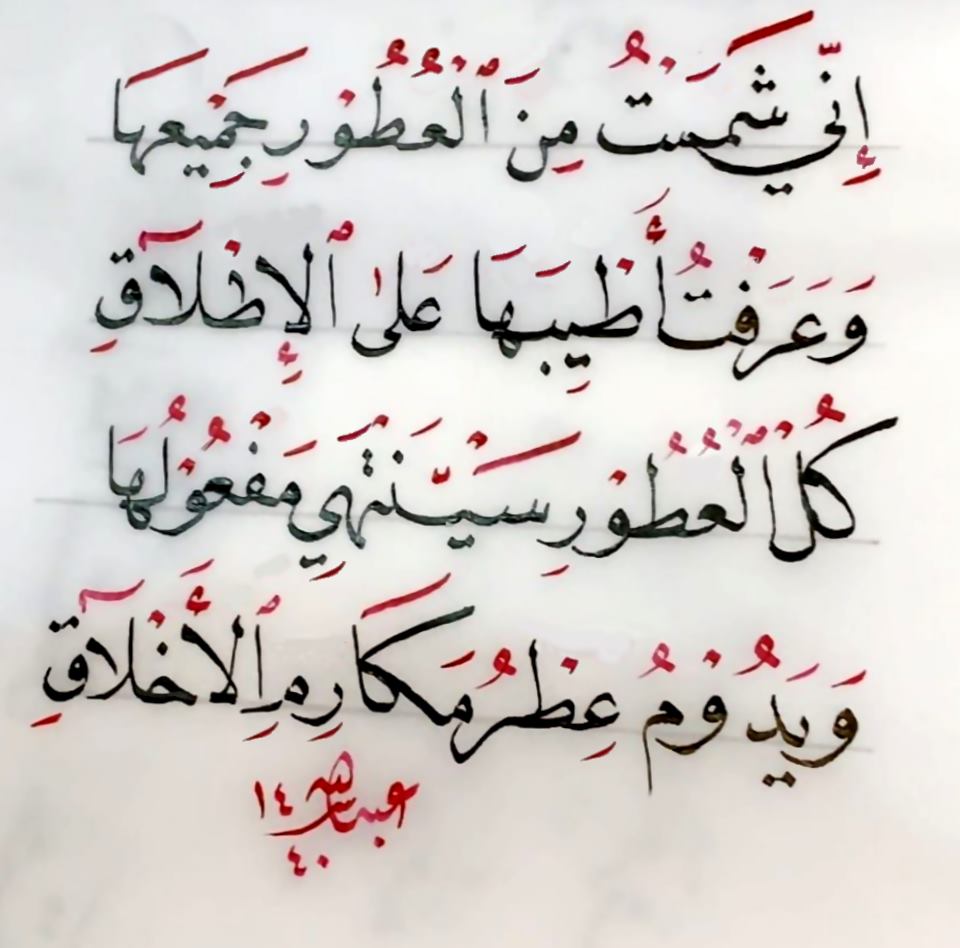 إِنِّي شَمَمْتُ مِنَ ٱلْعُطُورِ جَمِيعَهَا
وَعَرَفْتُ أَطْيَبَهَا عَلَى ٱلْإِطْلَاقِ
كُلُّ ٱلْعُطُورِ سَيَنْتَهِي مَفْعُوْلُهَا
وَيَدُوْمُ عِطْرُ مَكَارِمِ ٱلْأَخْلَاقِ
عبدالله ١٤
٤٠